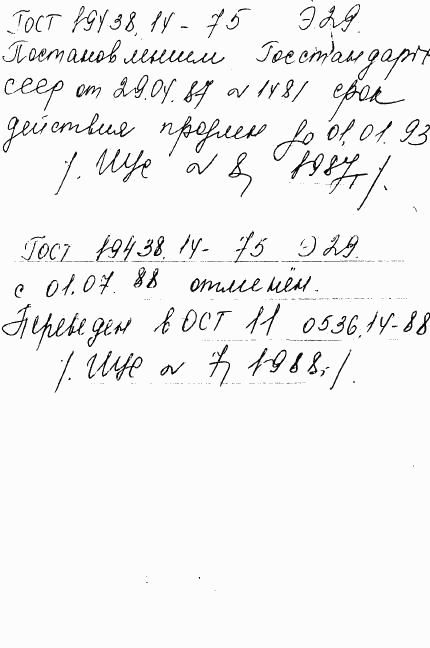 ГОСТ 19438.14-75 Э29.
Постановлением Госстандарта
СССР от 29.04.87 № 1481 срок
действия продлен до 01.01.93
/. ИУС № 8, 1987г /.
ГОСТ 19438.14-75 Э29
с 01.07.88 отменён.
Переведен в ОСТ 11 0536.14-88
/. ИУС № 7, 1988г./